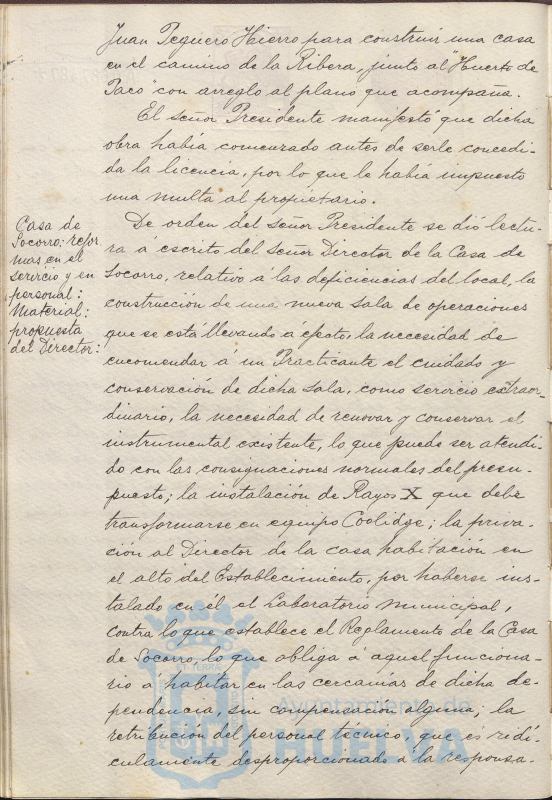 Juan Peguero Hierro para construir una casa
en el camino de la Ribera, junto al "Huerto de
Paco" con arreglo al plano que acompaña.
El señor Presidente manifestó que dicha
obra había comenzado antes de serle concedi-
da la licencia, por lo que le había impuesto
una multa al propietario.
Casa de
Socorro: refor
mas en el
servicio y en
personal:
Material:
propuesta
del Director:
De orden del Señor Presidente se dió lectu-
ra á escrito del Señor Director de la Casa de
Socorro, relativo á las deficiencias del local, la
construcción de una nueva sala de operaciones
que se está llevando á efecto, la necesidad de
encomendar á un Practicante el cuidado y
conservación de dicha sala, como servicio extraor-
dinario, la necesidad de renovar y conservar el
instrumental existente, lo que puede ser atendi-
do con las consignaciones normales del presu-
puesto; la instalación de Rayos X que debe
transformarse en equipo Coolidge; la priva-
ción al Director de la casa habitación en
el alto del Establecimiento, por haberse ins-
talado en él el Laboratorio Municipal,
contra lo que establece el Reglamento de la Casa
de Socorro, lo que obliga á aquel funciona-
rio á habitar en las cercanías de dicha de-
pendencia, sin compensación alguna; la
retribución del personal técnico, que es ridí-
culamente desproporcionado á la responsa-
Ayuntamiento de
HUELVA